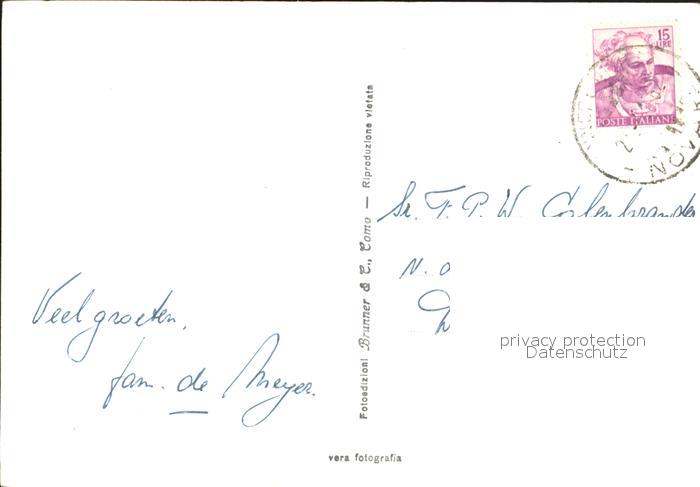 15
LIRE
POSTE ITALIANE
NOVARA
Fotoedizioni Brunner & C., Como — Riproduzione vietata
Sr. F. P. W.
N. O
Veel groeten,
fam. de Meyer.
privacy protection
Datenschutz
vera fotografia